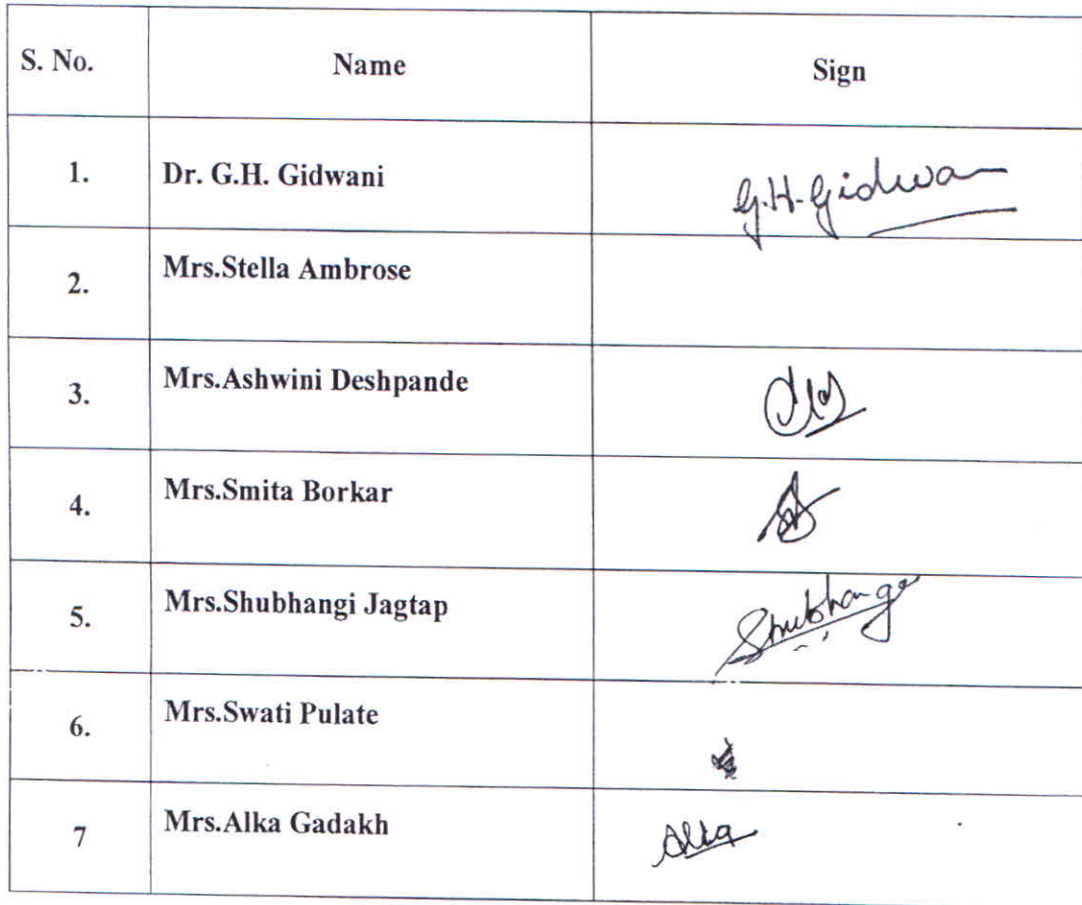 S. No. Name Sign
1. Dr. G.H. Gidwani G.H. Gidwani
2. Mrs.Stella Ambrose
3. Mrs.Ashwini Deshpande
4. Mrs.Smita Borkar
5. Mrs.Shubhangi Jagtap Shubhange
6. Mrs.Swati Pulate
7 Mrs.Alka Gadakh Alka